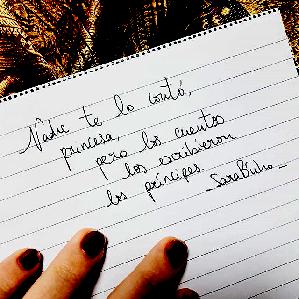 Nadie te lo contó,
princesa,
pero los cuentos
los escribieron
los príncipes.
-SaraBúho-